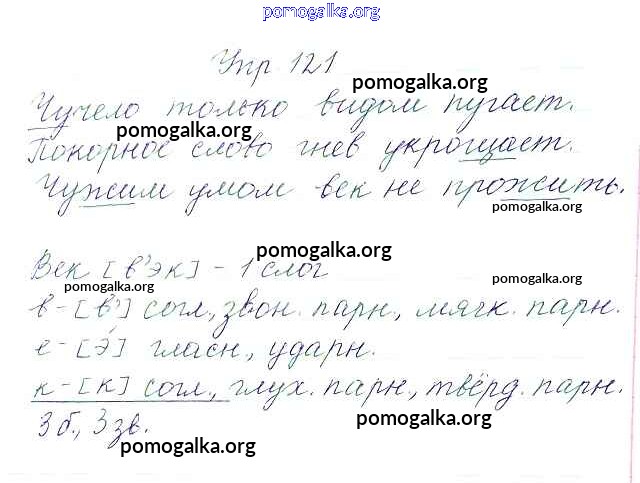 pomogalka.org
Упр 121
pomogalka.org
Чучело только видом пугает.
pomogalka.org
Покорное слово гнев укрощает.
Чужим умом век не прожить.
pomogalka.org
pomogalka.org
Век [в'эк] - 1 слог
pomogalka.org
pomogalka.org
в - [в'] согл., звон. парн., мягк. парн.
е - [э́] гласн., ударн.
к - [к] согл., глух. парн., твёрд. парн.
pomogalka.org
3 б., 3 зв.
pomogalka.org